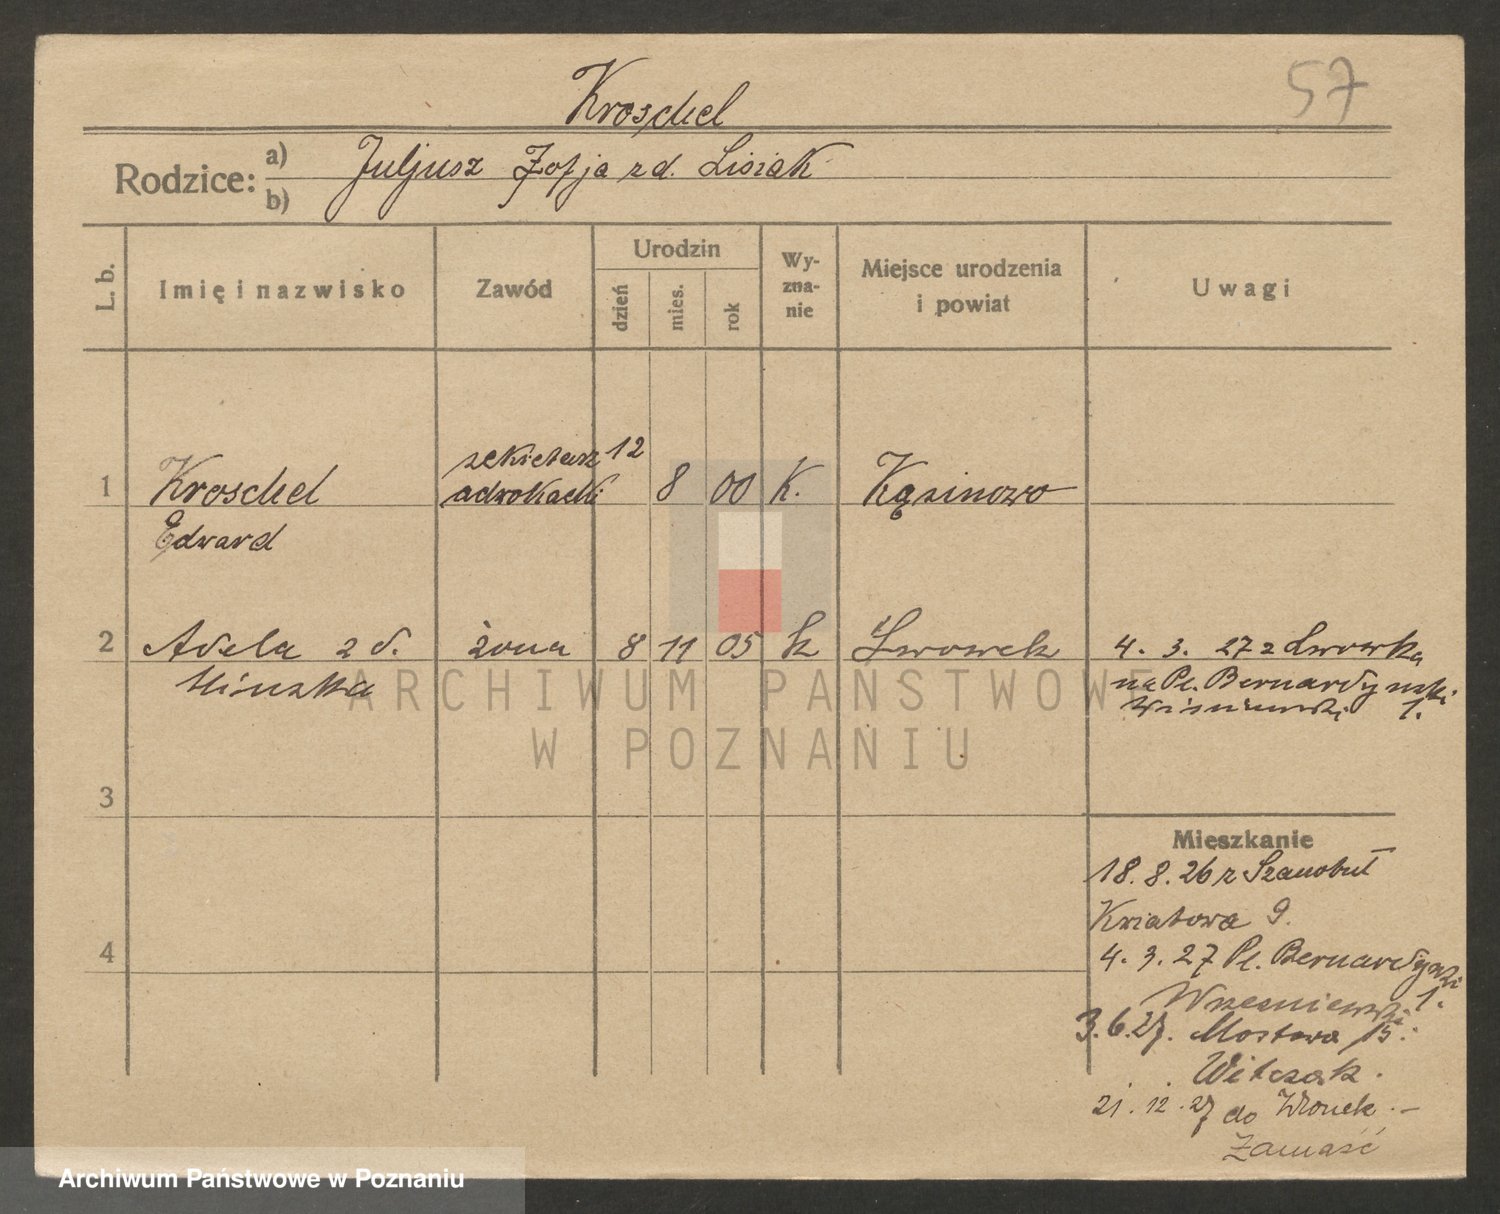 57
Kroschel
Rodzice: a) Juljusz Zofja zd. Lisiak
b)
L. b.
Imię i nazwisko
Zawód
Urodzin
dzień
mies.
rok
Wy-
zna-
nie
Miejsce urodzenia
i powiat
Uwagi
1 Kroschel sekietarz adwokacki 12 8 00 K. Kąsinowo
Edward
2 Adela zd. żona 8 11 05 k Lwowek 4. 3. 27 z Lwowka
na Pl. Bernardynski
Wiśniewski 1.
3
4
Mieszkanie
18. 8. 26 z Szamotuł
Kwiatowa 9.
4. 3. 27 Pl. Bernardyński
Wrzesniewski 1.
3. 6. 27. Mostowa 15.
Witczak.
21. 12. 27 do Wronek. —
Zamość
ARCHIWUM PAŃSTWOWE
W POZNANIU
Archiwum Państwowe w Poznaniu